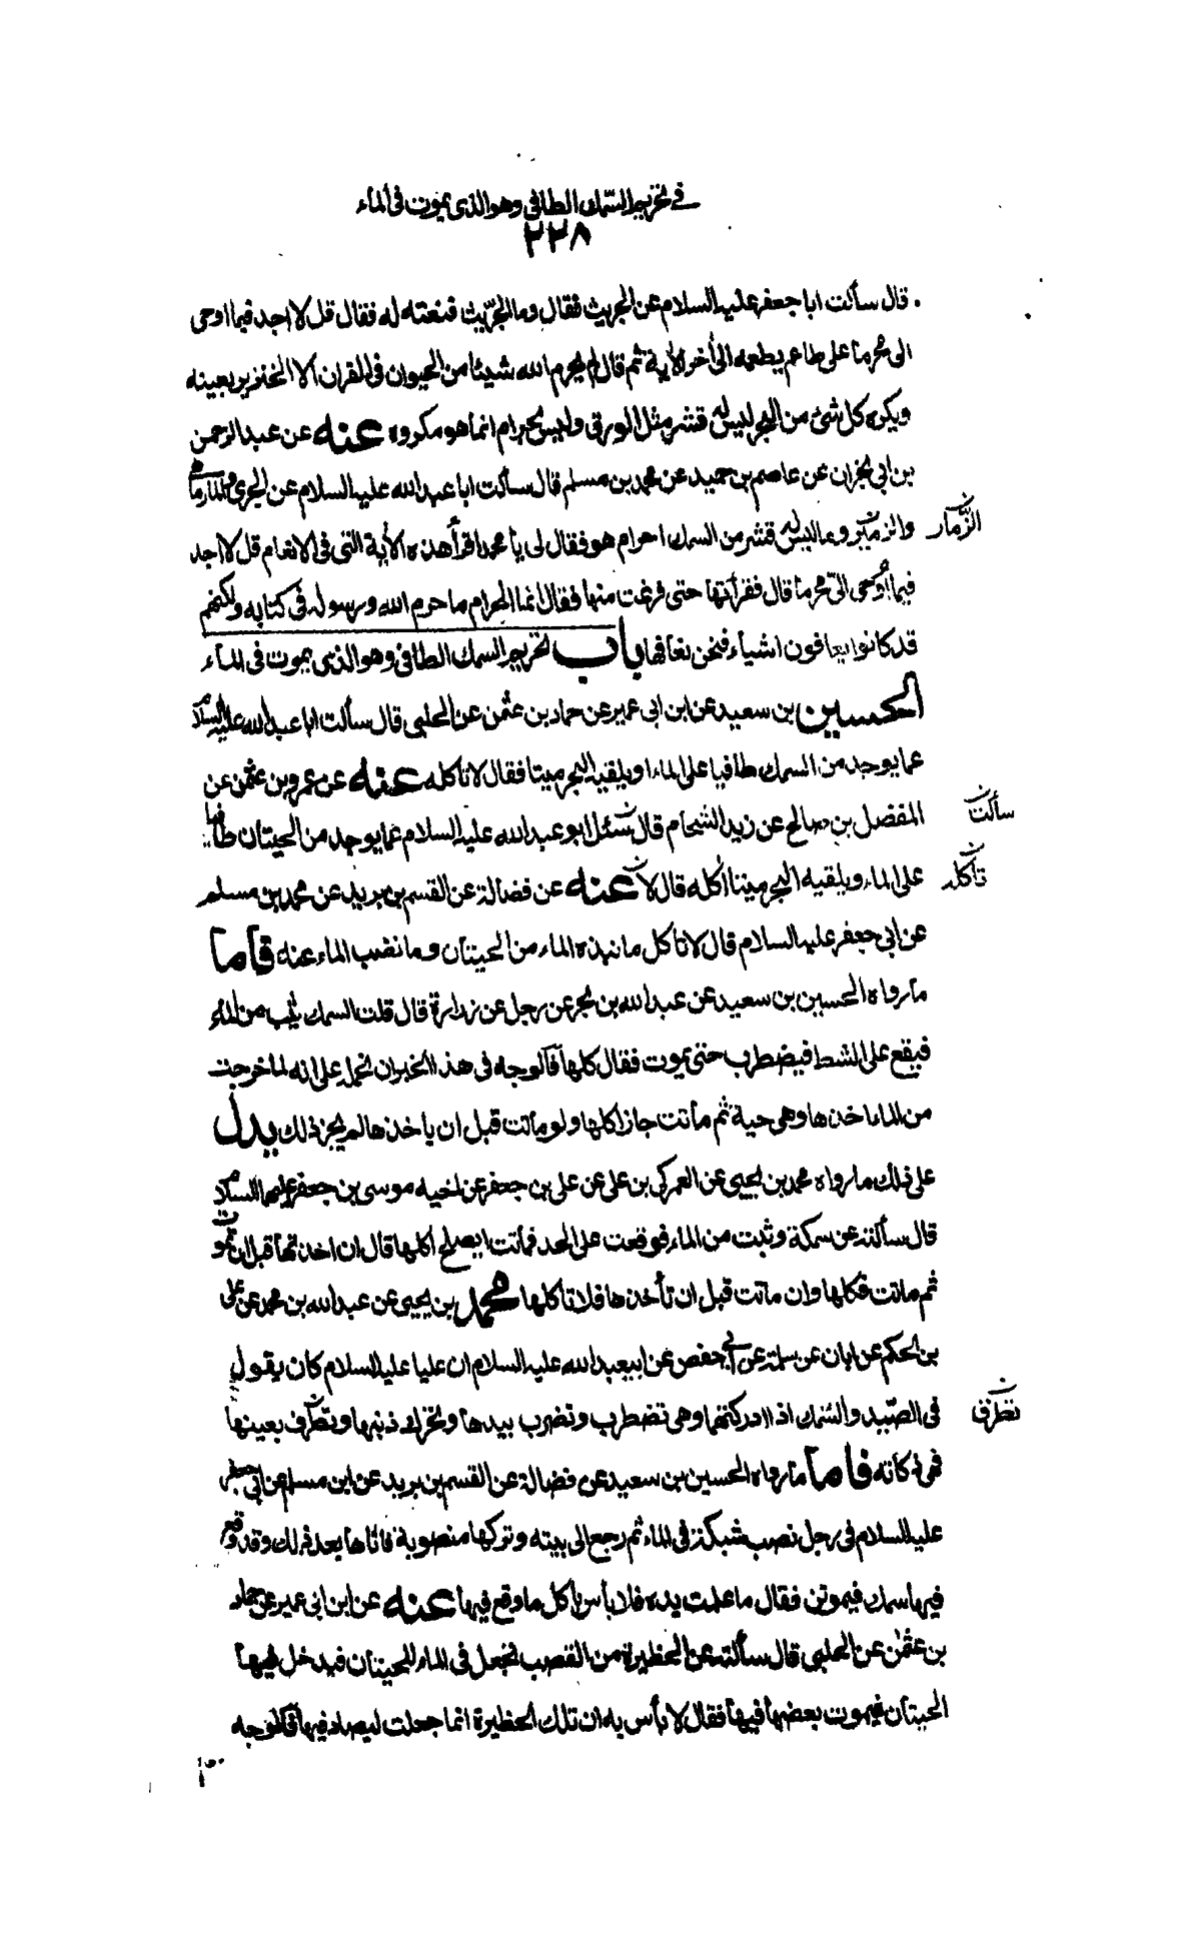 في تحريم السمك الطافي وهو الذي يموت في الماء
٢٢٨
قال سألت ابا جعفر عليه السلام عن الجريث فقال وما الجرّيث فنعته له فقال قل لا اجد فيما اوحى
الى محرما على طاعم يطعمه الى أخر الأية ثم قال لم يحرم الله شيئا من الحيوان في القران الا الخنزير بعينه
ويكره كل شئ من البحر ليس له قشر مثل الورق وليس بحرام انما هو مكروه عنه عن عبد الرحمن
بن ابي نجران عن عاصم بن حميد عن محمد بن مسلم قال سألت ابا عبد الله عليه السلام عن الجرى والمارماهى
والزمير وما ليس له قشر من السمك احرام هو فقال لى يا محمد اقرأ هذه الأية التى في الانعام قل لا اجد
الزمار
فيما أوحى الىّ محرما قال فقرأتها حتى فرغت منها فقال انما الحرام ما حرم الله ورسوله في كتابه ولكنهم
قد كانوا يعافون اشياء فنحن نعافها باب تحريم السمك الطافي وهو الذي يموت في الماء
الحسين بن سعيد عن ابن ابى عمير عن حماد بن عثمن عن الحلبى قال سألت ابا عبد الله عليه السلام
عما يوجد من السمك طافيا على الماء او يلقيه البحر ميتا فقال لا تاكله عنه عن عمرو بن عثمن عن
المفضل بن صالح عن زيد الشحام قال سئل ابو عبد الله عليه السلام عما يوجد من الحيتان طافيا
سألت
على الماء ويلقيه البحر ميتا اكله قال لا عنه عن فضالة عن القسم بن بريد عن محمد بن مسلم
تأكله
عن ابى جعفر عليه السلام قال لا تاكل ما نبذه الماء من الحيتان وما نضب الماء عنه فاما
ما رواه الحسين بن سعيد عن عبد الله بن بحر عن رجل عن زرارة قال قلت السمك يثب من الماء
فيقع على الشط فيضطرب حتى يموت فقال كلها فالوجه في هذا الخبر ان نحمله على انه لما خرجت
من الماء اخذها وهى حية ثم ماتت جاز اكلها ولو ماتت قبل ان ياخذها لم يجز ذلك يدل
على ذلك ما رواه محمد بن يحيى عن العمركى بن على عن على بن جعفر عن اخيه موسى بن جعفر عليهما السلام
قال سألته عن سمكة وثبت من الماء فوقعت على الجد فماتت ايصلح اكلها قال ان اخذتها قبل ان تموت
ثم ماتت فكلها وان ماتت قبل ان تأخذها فلا تاكلها محمد بن يحيى عن عبد الله بن محمد عن على
بن الحكم عن ابان عن سلمة عن أبي حفص عن ابيعبد الله عليه السلام ان عليا عليه السلام كان يقول
في الصّيد والسّمك اذا ادركتها وهى تضطرب وتضرب بيدها وتحرك ذنبها وتطرف بعينها
تطرف
فهى ذكاته فاما ما رواه الحسين بن سعيد عن فضالة عن القسم بن بريد عن ابن مسلم عن ابى جعفر
عليه السلام في رجل نصب شبكة في الماء ثم رجع الى بيته وتركها منصوبة فاتاها بعد ذلك وقد وقع
فيها سمك فيموتن فقال ما عملت يده فلا بأس بأكل ما وقع فيها عنه عن ابن ابى عمير عن حماد
بن عثمن عن الحلبى قال سألته عن الحظيرة من القصب تجعل في الماء للحيتان فيدخل فيها
الحيتان فيموت بعضها فيها فقال لا بأس به ان تلك الحظيرة انما جعلت ليصاد فيها فالوجه